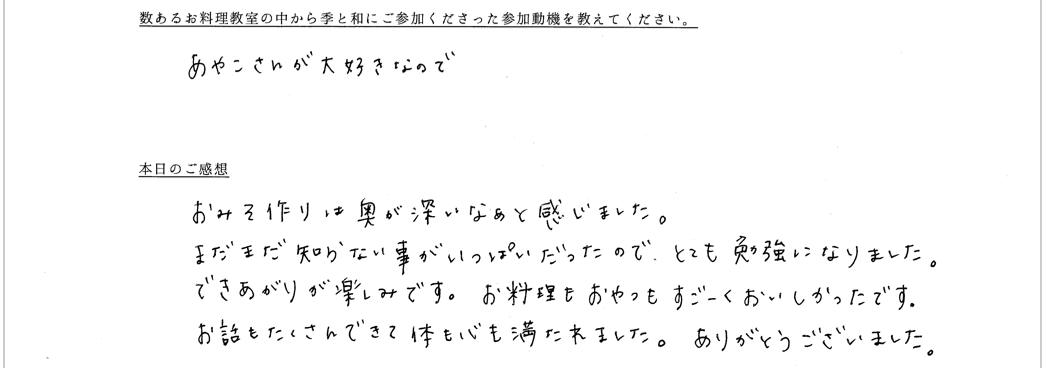 数あるお料理教室の中から季と和にご参加くださった参加動機を教えてください。
あやこさんが大好きなので
本日のご感想
おみそ作りは奥が深いなぁと感じました。
まだまだ知らない事がいっぱいだったので、とても勉強になりました。
できあがりが楽しみです。お料理もおやつもすごーくおいしかったです。
お話もたくさんできて体も心も満たれました。ありがとうございました。